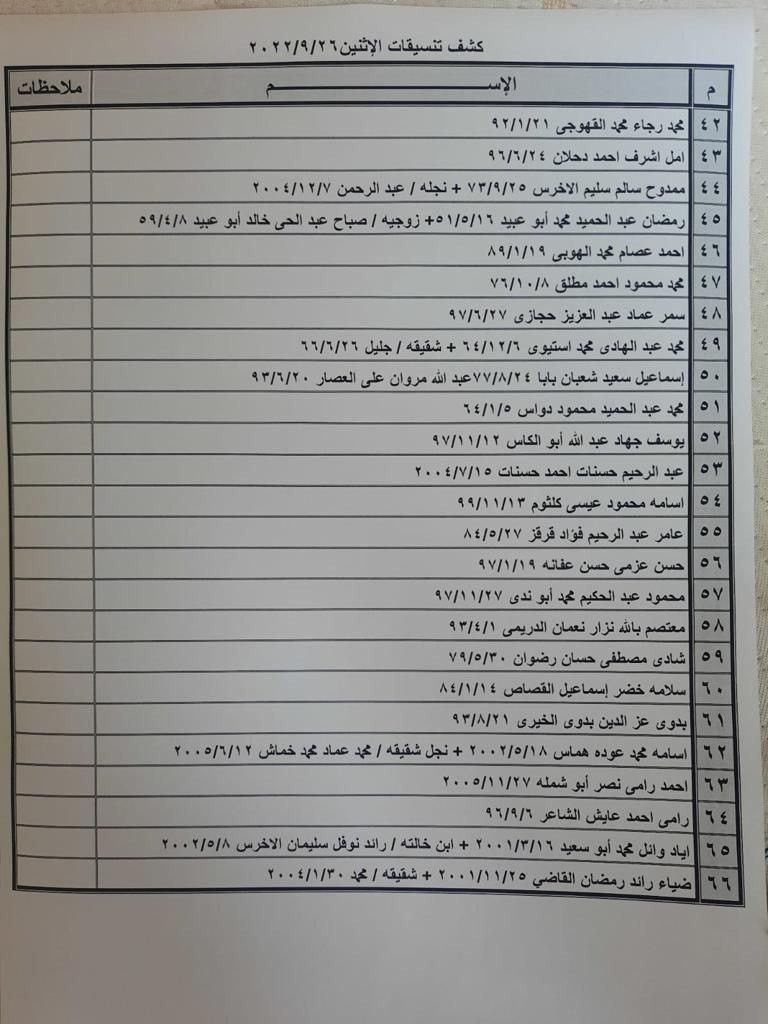 كشف تنسيقات الإثنين ٢٠٢٢/٩/٢٦
م الإســـــــم ملاحظات
٤٢ محمد رجاء محمد القهوجى ٩٢/١/٢١
٤٣ امل اشرف احمد دحلان ٩٦/٦/٢٤
٤٤ ممدوح سالم سليم الاخرس ٧٣/٩/٢٥ + نجله / عبد الرحمن ٢٠٠٤/١٢/٧
٤٥ رمضان عبد الحميد محمد أبو عبيد ٥١/٥/١٦+ زوجيه / صباح عبد الحى خالد أبو عبيد ٥٩/٤/٨
٤٦ احمد عصام محمد الهوبى ٨٩/١/١٩
٤٧ محمد محمود احمد مطلق ٧٦/١٠/٨
٤٨ سمر عماد عبد العزيز حجازى ٩٧/٦/٢٧
٤٩ محمد عبد الهادى محمد استيوى ٦٤/١٢/٦ + شقيقه / جليل ٦٦/٦/٢٦
٥٠ إسماعيل سعيد شعبان بابا ٧٧/٨/٢٤عبد الله مروان على العصار ٩٣/٦/٢٠
٥١ محمد عبد الحميد محمود دواس ٦٤/١/٥
٥٢ يوسف جهاد عبد الله أبو الكاس ٩٧/١١/١٢
٥٣ عبد الرحيم حسنات احمد حسنات ٢٠٠٤/٧/١٥
٥٤ اسامه محمود عيسى كلثوم ٩٩/١١/١٣
٥٥ عامر عبد الرحيم فؤاد قرقز ٨٤/٥/٢٧
٥٦ حسن عزمى حسن عفانه ٩٧/١/١٩
٥٧ محمود عبد الحكيم محمد أبو ندى ٩٧/١١/٢٧
٥٨ معتصم بالله نزار نعمان الدريمى ٩٣/٤/١
٥٩ شادى مصطفى حسان رضوان ٧٩/٥/٣٠
٦٠ سلامه خضر إسماعيل القصاص ٨٤/١/١٤
٦١ بدوى عز الدين بدوى الخيرى ٩٣/٨/٢١
٦٢ اسامه محمد عوده هماس ٢٠٠٢/٥/١٨ + نجل شقيقه / محمد عماد محمد خماش ٢٠٠٥/٦/١٢
٦٣ احمد رامى نصر أبو شمله ٢٠٠٥/١١/٢٧
٦٤ رامى احمد عايش الشاعر ٩٦/٩/٦
٦٥ اياد وائل محمد أبو سعيد ٢٠٠١/٣/١٦ + ابن خالته / رائد نوفل سليمان الاخرس ٢٠٠٢/٥/٨
٦٦ ضياء رائد رمضان القاضي ٢٠٠١/١١/٢٥ + شقيقه / محمد ٢٠٠٤/١/٣٠